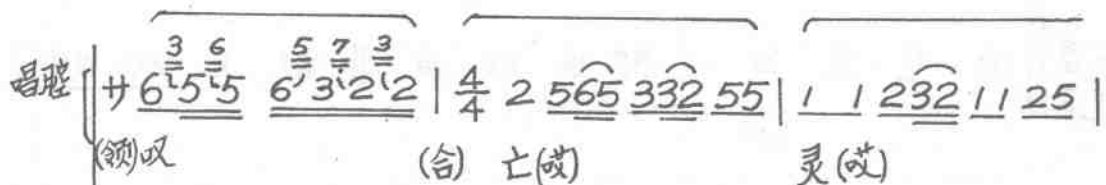 3 6 5 7 3
唱腔 サ 6 5 5 6 3 2 2 | 4/4 2 565 332 55 | 1 1 232 11 25 |
(领)叹 (合) 亡(哎) 灵(哎)